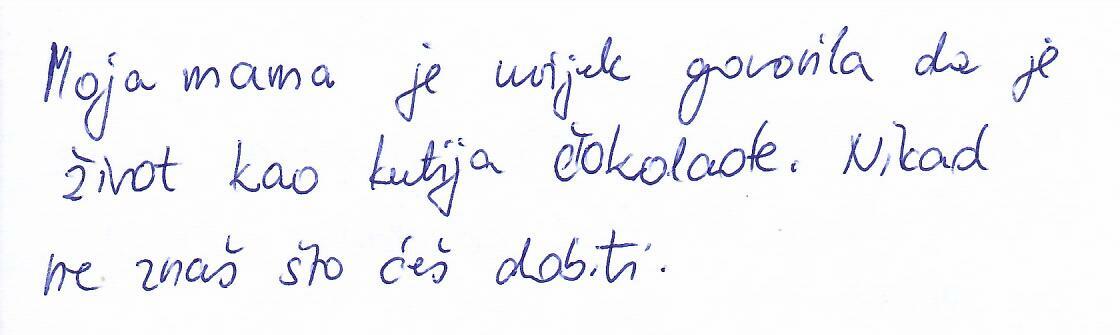 Moja mama je uvijek govorila da je
život kao kutija čokolade. Nikad
ne znaš što ćeš dobiti.